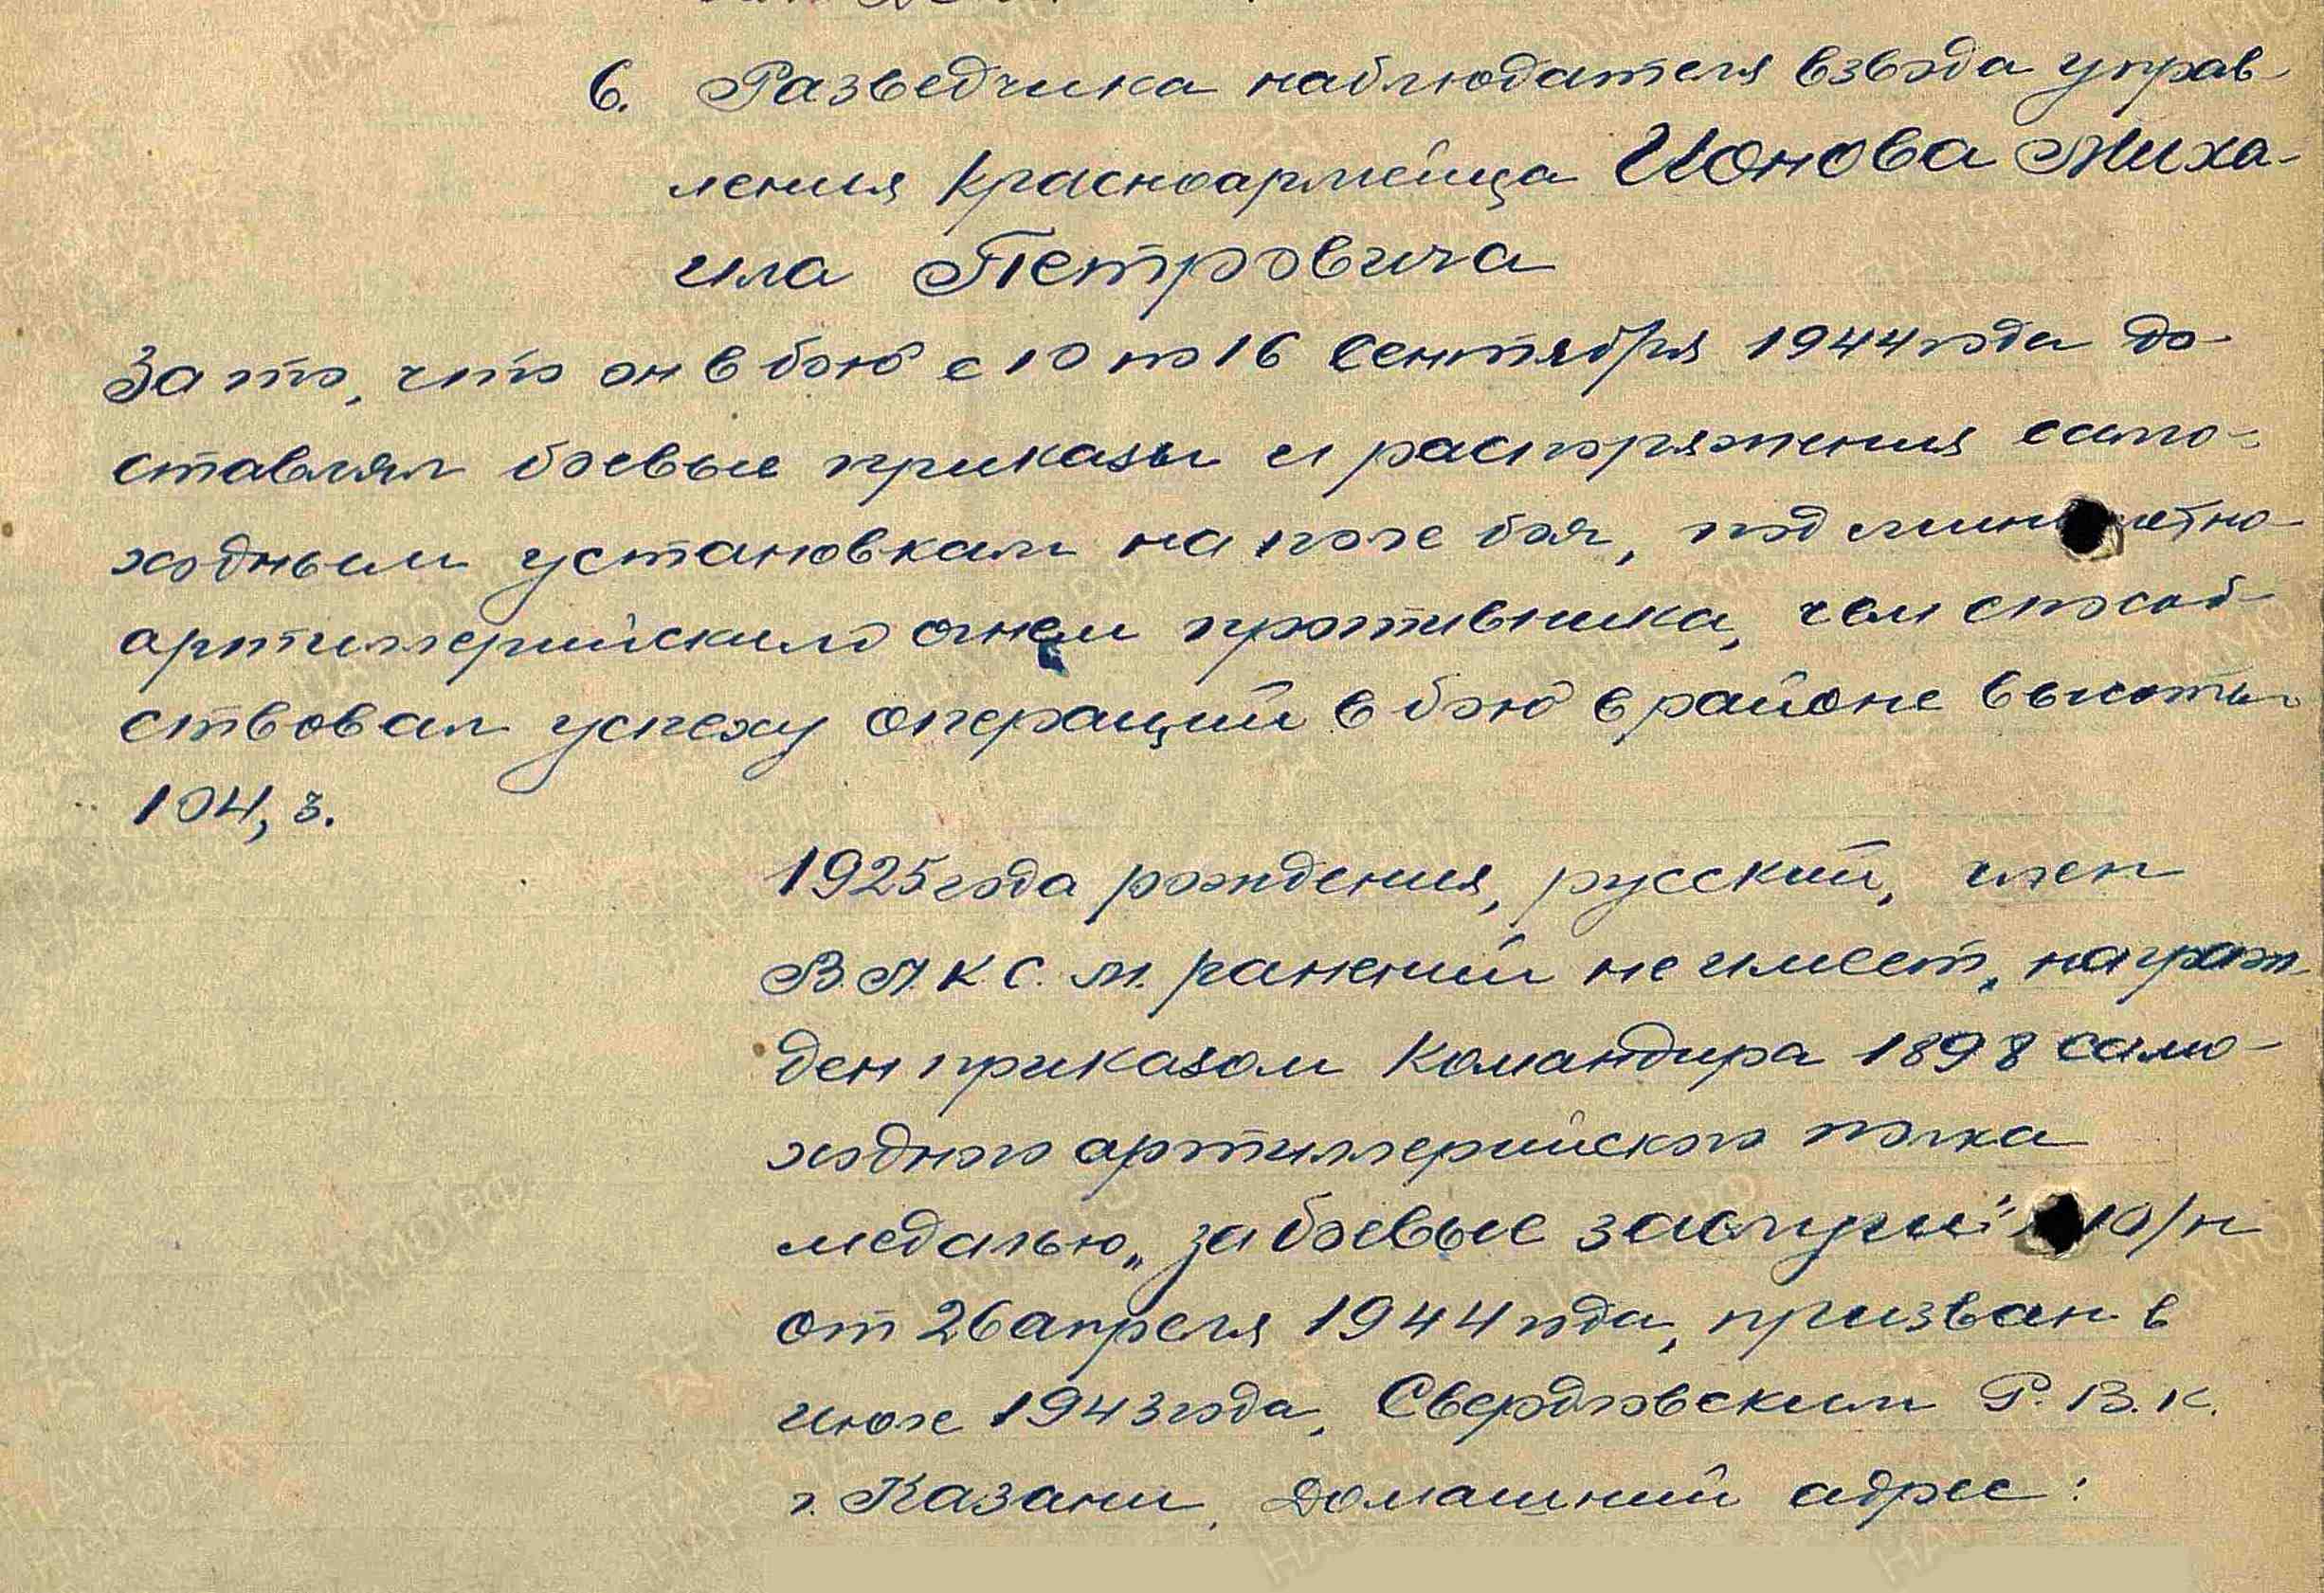 6. Разведчика наблюдателя взвода управ-
ления Красноармейца Ионова Миха-
ила Петровича
За то, что он в бою с 10 по 16 Сентября 1944 года до-
ставлял боевые приказы и распоряжения само-
ходным установкам на поле боя, под мин етно-
артиллерийским огнем противника, чем способ-
ствовал успеху операций в бою в районе высоты
104,3.
1925 года рождения, русский, член
В.Л.К.С.М. ранений не имеет, награж-
ден приказом Командира 1898 само-
ходного артиллерийского полка
медалью „за боевые заслуги" 10/н
от 26 апреля 1944 года, призван в
июле 1943 года, Свердловским Р.В.К.
г. Казани, Домашний адрес: